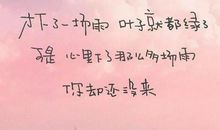 才下了一场雨 叶子就都绿了
可是 心里下了那么多场雨
你却还没来